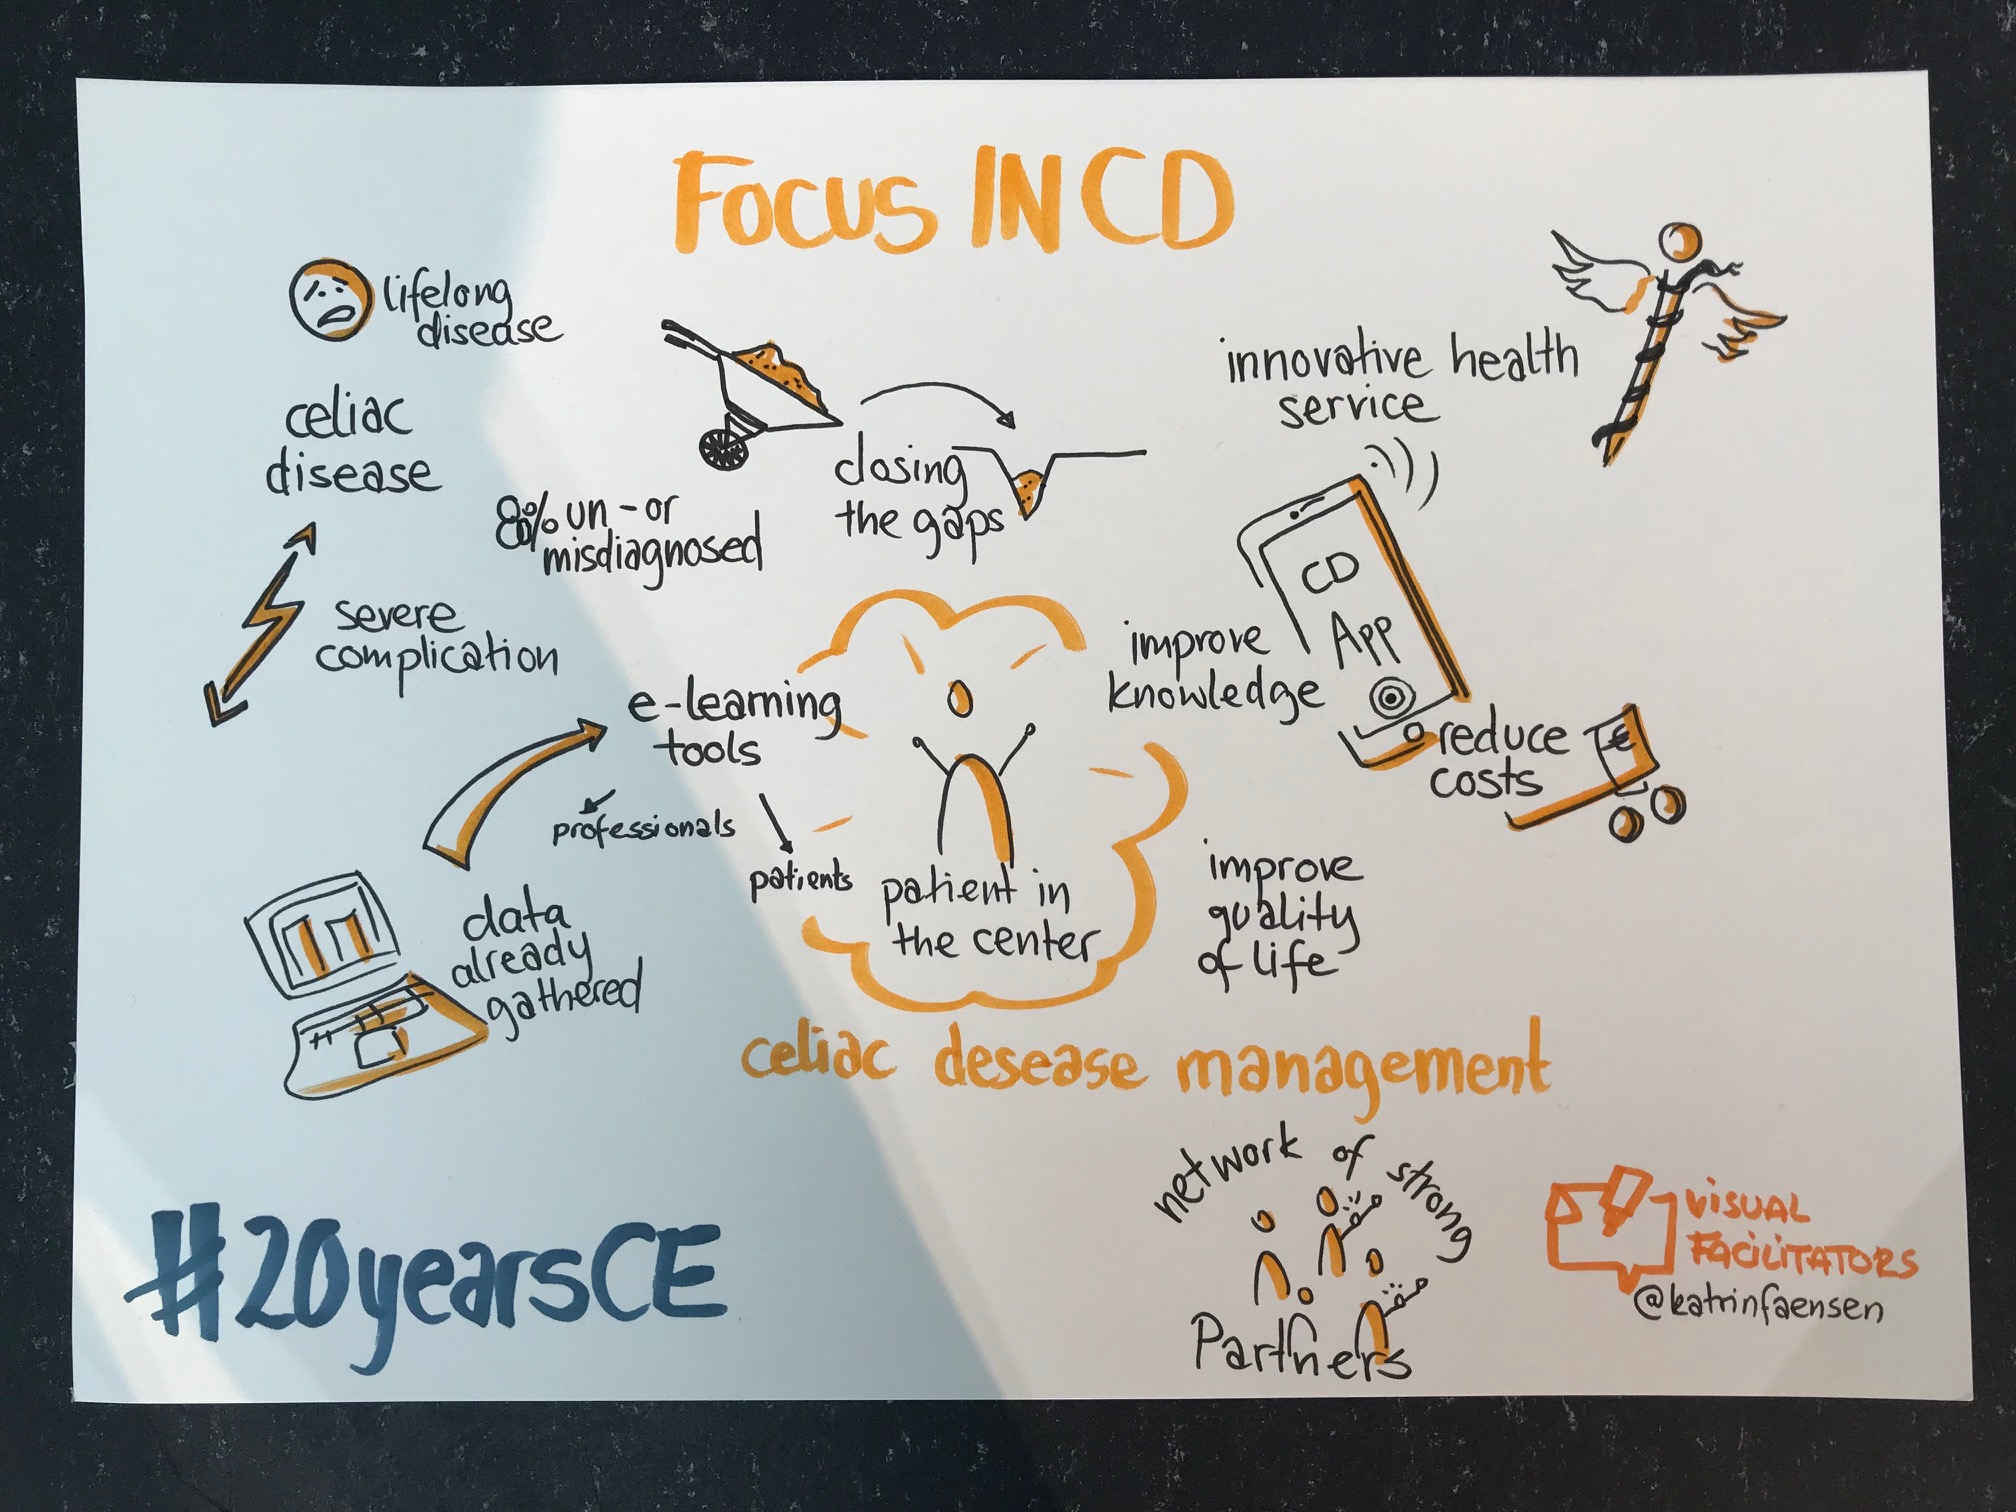 Focus IN CD
lifelong
disease
celiac
disease
severe
complication
un-or
misdiagnosed
closing
the gaps
innovative health
service
CD
App
improve
knowledge
reduce
costs
€
e-learning
tools
professionals
patients
data
already
gathered
patient in
the center
improve
quality
of life
celiac desease management
network of strong
Partners
#20yearsCE
VISUAL
FACILITATORS
@katrinfaensen